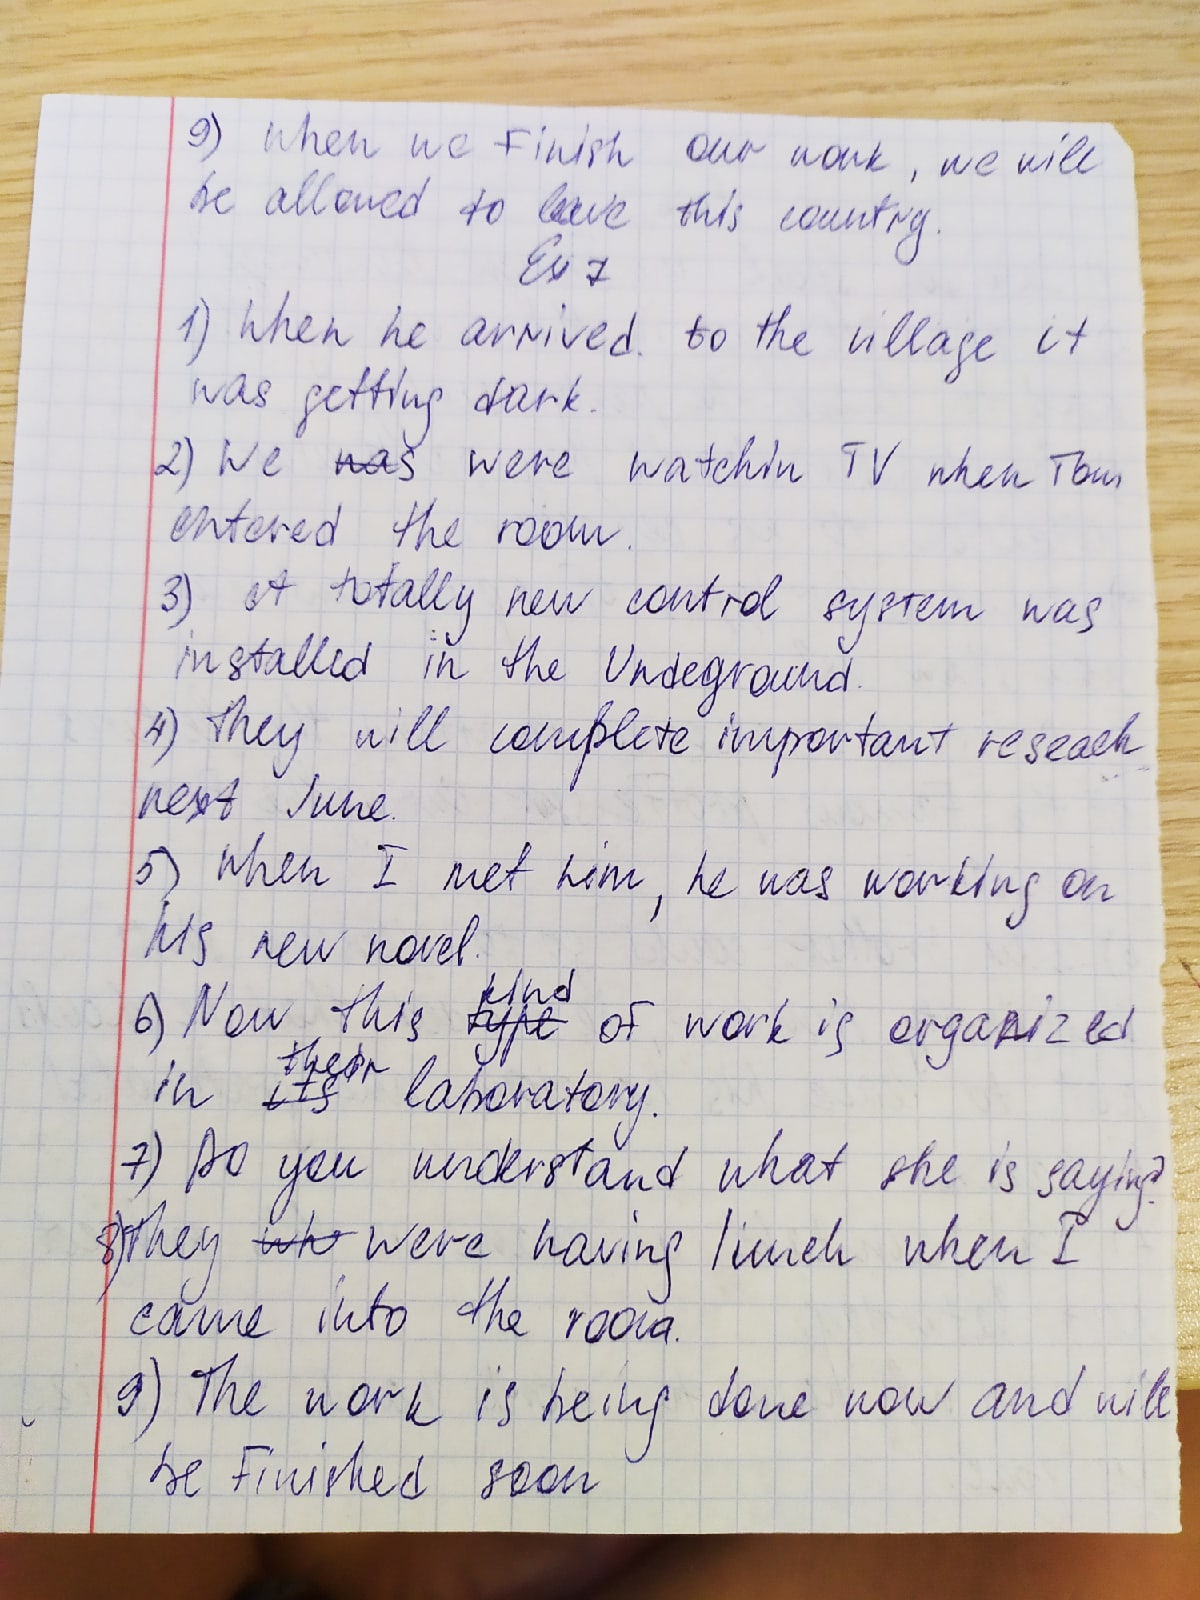 9) When we Finish our work, we will
be allowed to leave this country.
Ex 7
1) When he arrived. to the village it
was getting dark.
2) We was were watchin TV when Tom
entered the room.
3) A totally new control system was
installed in the Undeground.
4) They will complete important reseach
next June.
5) When I met him, he was working on
his new novel.
kind
6) Now this type of work is organized
their
in its laboratory.
7) Do you understand what she is saying?
8) They who were having lunch when I
came into the room.
9) The work is being done now and will
be Finished soon